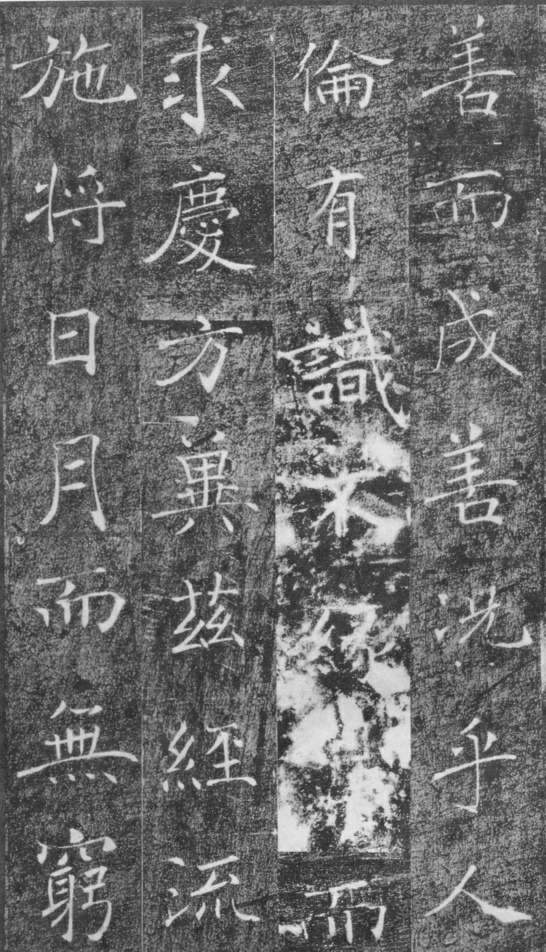 善而成善况乎人
倫有識不緣而
求慶方冀兹經流
施将日月而無窮